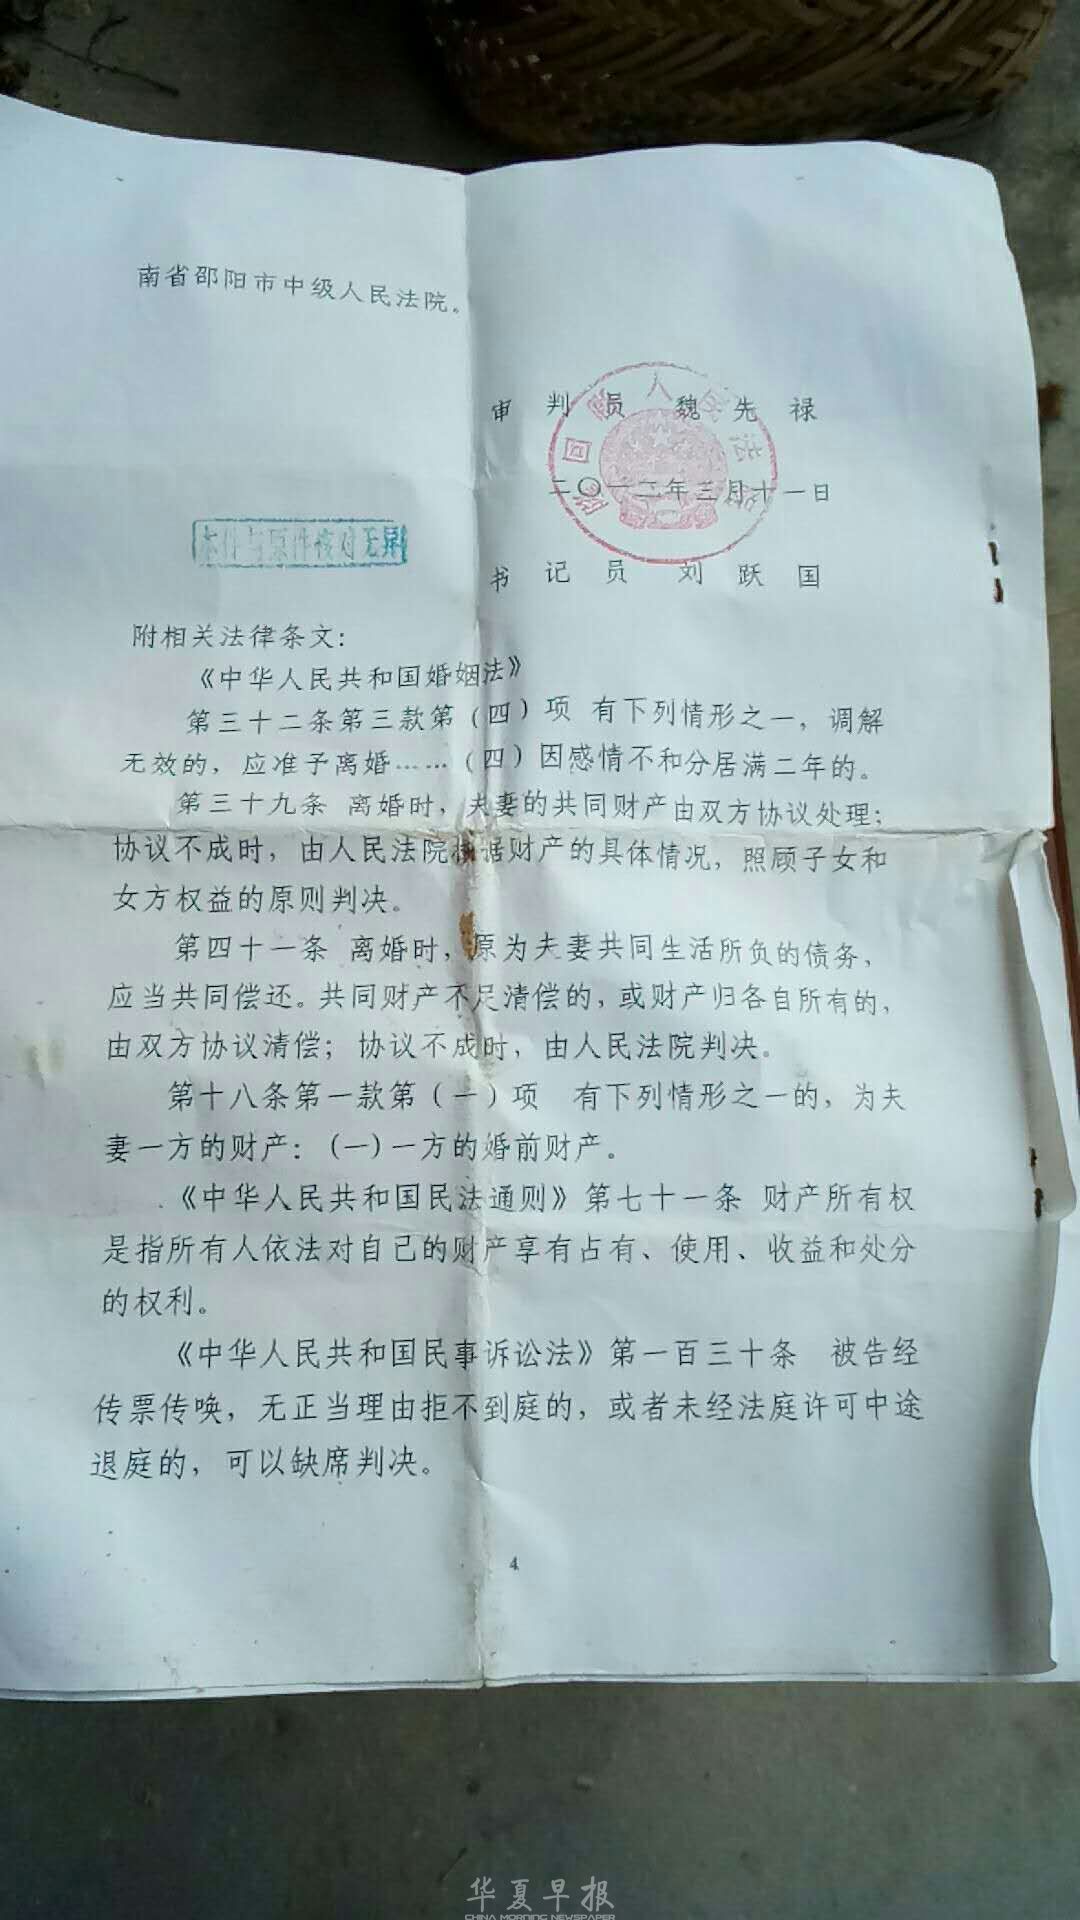 南省邵阳市中级人民法院。
审 判 员 魏 先 禄
二〇一二年三月十一日
本件与原件核对无异
书 记 员 刘 跃 国
附相关法律条文：
《中华人民共和国婚姻法》
第三十二条第三款第（四）项 有下列情形之一，调解
无效的，应准予离婚……（四）因感情不和分居满二年的。
第三十九条 离婚时，夫妻的共同财产由双方协议处理；
协议不成时，由人民法院根据财产的具体情况，照顾子女和
女方权益的原则判决。
第四十一条 离婚时，原为夫妻共同生活所负的债务，
应当共同偿还。共同财产不足清偿的，或财产归各自所有的，
由双方协议清偿；协议不成时，由人民法院判决。
第十八条第一款第（一）项 有下列情形之一的，为夫
妻一方的财产：（一）一方的婚前财产。
《中华人民共和国民法通则》第七十一条 财产所有权
是指所有人依法对自己的财产享有占有、使用、收益和处分
的权利。
《中华人民共和国民事诉讼法》第一百三十条 被告经
传票传唤，无正当理由拒不到庭的，或者未经法庭许可中途
退庭的，可以缺席判决。
4
华夏早报
CHINA MORNING NEWSPAPER